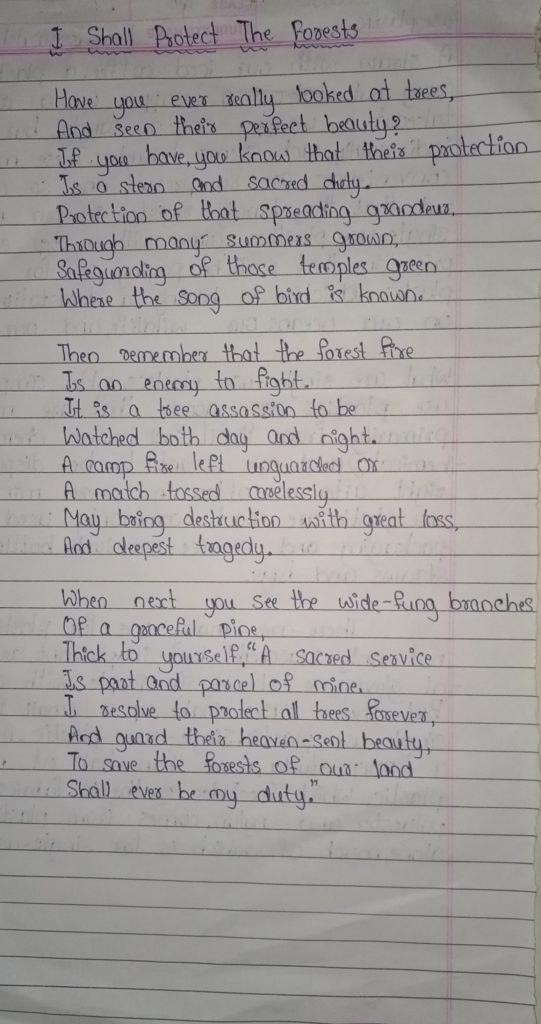 I Shall Protect The Forests
Have you ever really looked at trees,
And seen their perfect beauty?
If you have, you know that their protection
Is a stern and sacred duty.
Protection of that spreading grandeur,
Through many summers grown,
Safegurding of those temples green
Where the song of bird is known.
Then remember that the forest fire
Is an enemy to fight.
It is a tree assassion to be
Watched both day and night.
A camp fire left unguarded or
A match tossed carelessly
May bring destruction with great loss,
And deepest tragedy.
When next you see the wide-fung branches
Of a graceful pine,
Thick to yourself, "A sacred service
Is part and parcel of mine.
I resolve to protect all trees forever,
And guard their heaven-sent beauty,
To save the forests of our land
Shall ever be my duty."